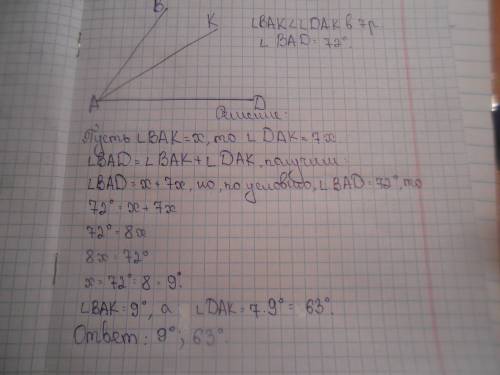 B
K
∠BAK < ∠DAK в 7р
∠BAD = 72°.
A
D
Решение:
Пусть ∠BAK = x, то ∠DAK = 7x
∠BAD = ∠BAK + ∠DAK, получим:
∠BAD = x + 7x, но, по условию, ∠BAD = 72°, то
72° = x + 7x
72° = 8x
8x = 72°
x = 72° : 8 = 9°.
∠BAK = 9°, а ∠DAK = 7·9° = 63°.
Ответ: 9°; 63°.